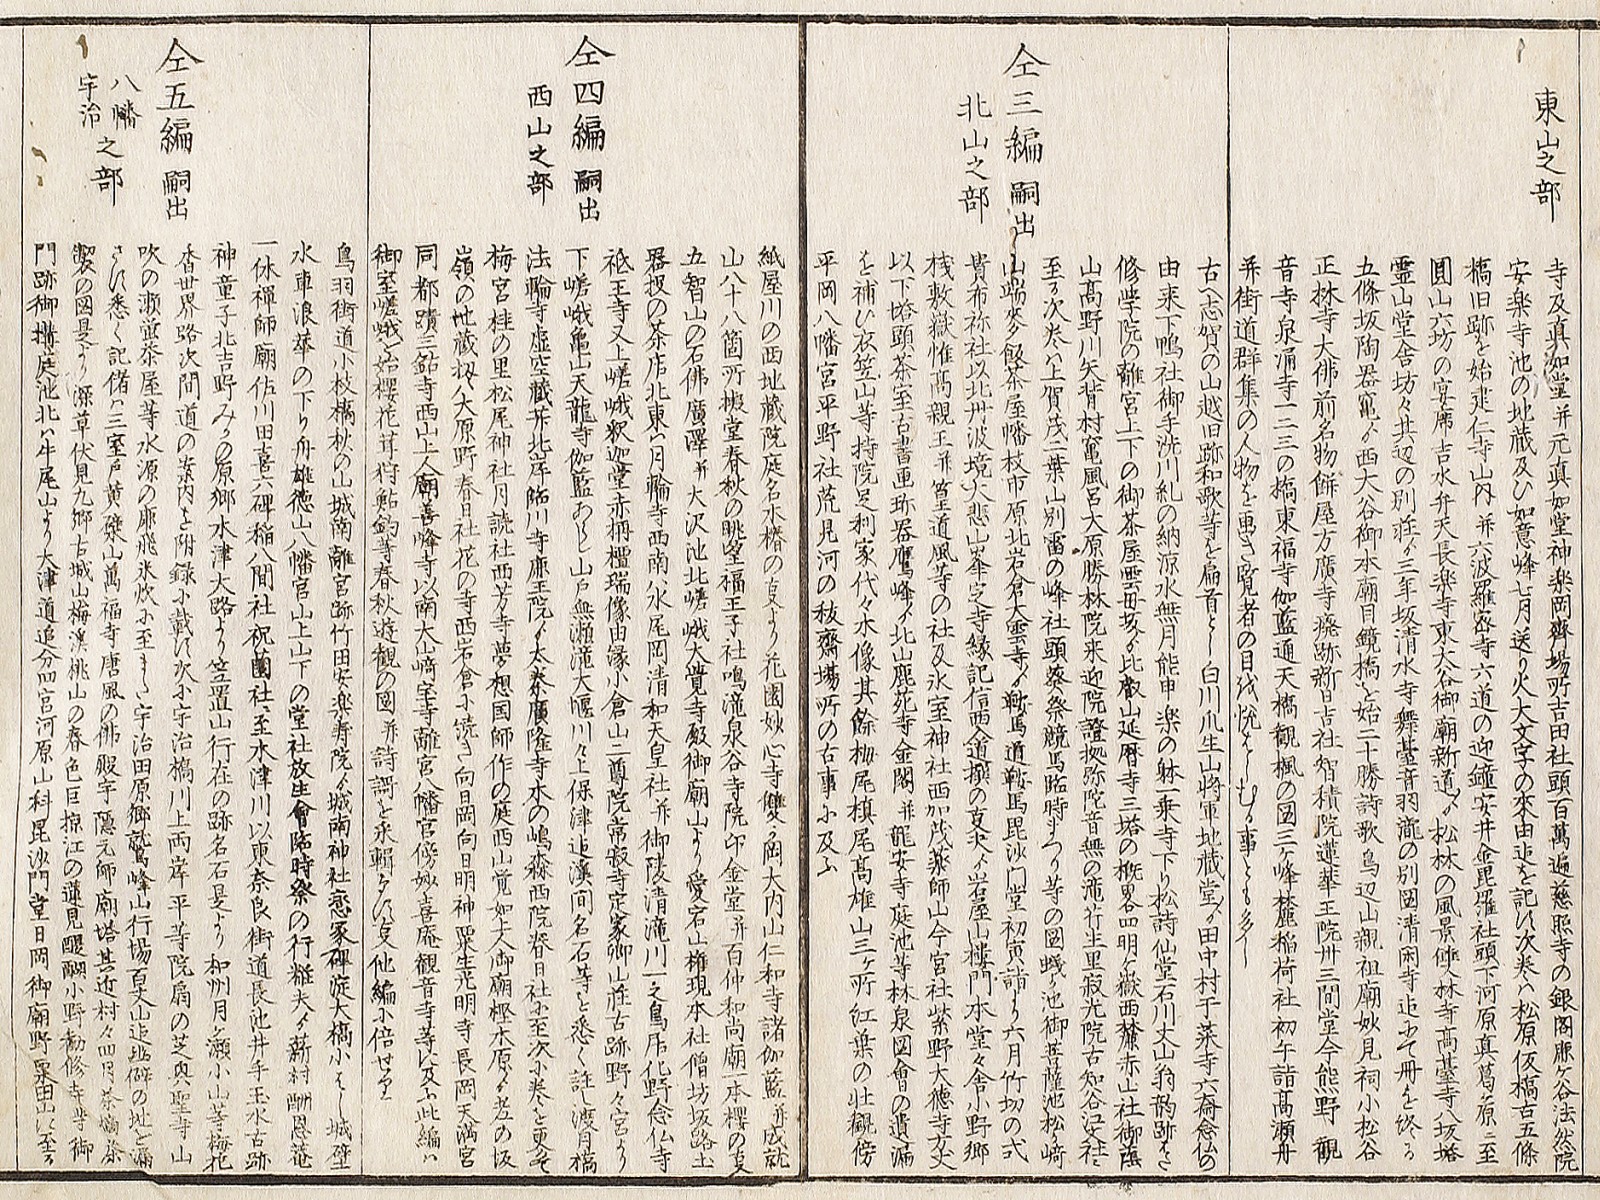 東山之部
寺及真如堂并元真如堂神楽岡齊場所吉田社頭百萬遍慈照寺の銀閣鹿ケ谷法然院
安楽寺池の地蔵及ひ如意峰七月送り火大文字の來由迠を記す次巻ハ松原仮橋古五條
橋旧跡を始建仁寺山内并六波羅密寺六道の迎鐘安井金毘羅社頭下河原真葛ヶ原ニ至
圓山六坊の宴席吉水弁天長楽寺東大谷御廟新道〆松林の風景雙林寺高臺寺八坂塔
霊山堂舎坊々其辺の別荘〆三年坂清水寺舞臺音羽瀧の別圖清閑寺迠にて冊を終る
五條坂陶器竈〆西大谷御本廟目鏡橋を始二十勝詩歌鳥辺山親祖廟妙見祠小松谷
正林寺大佛前名物餅屋方廣寺廃跡新日吉社智積院蓮華王院卅三間堂今熊野観
音寺泉涌寺一二三の橋東福寺伽藍通天橋観楓の図三ヶ峰麓稲荷社初午詣高瀬舟
并街道群集の人物を画き覧者の目を悦ハしむる事とも多し
仝三編 嗣出
北山之部
古へ志賀の山越旧跡和歌等を扁首とし白川爪生山将軍地蔵堂〆田中村干菜寺六斎念仏の
由来下鴨社御手洗川糺の納涼水無月能申楽の躰一乗寺下り松詩仙堂石川丈山翁韵跡を
修学院の離宮上下の御茶屋雲母坂〆比叡山延暦寺三塔の概畧四明ヶ嶽西麓赤山社御蔭
山高野川矢背村竃風呂大原勝林院来迎院證拠弥陀音無の滝竹生里寂光院古知谷江文社
山端麦飯茶屋幡枝市原北岩倉大雲寺〆鞍馬道鞍馬毘沙門堂初寅詣〆六月竹切の式
貴布祢社以北丹波境大悲山峯定寺縁記信西入道撰の支夬〆岩屋山樓門本堂々舎小野郷
棧敷嶽惟高親王并篁道風等の社及氷室神社西加茂薬師山今宮社紫野大徳寺方丈
以下塔頭茶室古書画珎器鷹峰〆北山鹿苑寺金閣并龍安寺庭池等林泉図會の遺漏
を補ひ衣笠山等持院足利家代々木像其餘栂尾槙尾高雄山三ヶ所紅葉の壮観傍
平岡八幡宮平野社荒見河の秡齋場所の古事に及ふ
仝四編 嗣出
西山之部
紙屋川の西地蔵院庭名木椿の支より花園妙心寺雙ヶ岡大内山仁和寺諸伽藍并成就
山八十八箇所拠堂春秋の眺望福王子社鳴滝泉谷寺院印金堂并百仲和尚廟一本櫻の支
五智山の石佛廣澤并大沢池北嵯峨大覺寺殿御廟山より愛宕山権現本社僧坊坂路土
器投の茶店北東ハ月輪寺西南ハ水尾岡清和天皇社并御陵清滝川一之鳥居化野念仏寺
祗王寺又上嵯峨釈迦堂赤栴檀瑞像由縁小倉山二尊院常寂寺定家卿山荘古跡野々宮より
下嵯峨亀山天龍寺伽藍あらし山戸無瀬滝大堰川々上保津迠渓間名石等を悉く註し渡月橋
法輪寺虚空蔵并北岸臨川寺鹿王院〆太秦廣隆寺木の嶋森西院春日社に至次に巻を更て
梅宮桂の里松尾神社月読社西芳寺夢想国師作の庭西山覚如上人御廟樫木原〆老の坂
嶺の地蔵扨ハ大原野春日社花の寺西岩倉小塩き向日岡向日明神粟生光明寺長岡天満宮
同都蹟三鈷寺西山上人廟善峰寺以南大山﨑宝寺離宮八幡宮傍妙喜庵観音寺等に及ふ此編ハ
御室嵯峨を始櫻花茸狩鮎釣等春秋遊観の図并詩謌を永輯ける支他編に倍せり
仝五編 嗣出
八幡
宇治 之部
鳥羽街道小枝橋秋の山城南離宮跡竹田安楽寿院〆城南神社恋冢碑淀大橋にハし城壁
水車浪華の下り舟雄徳山八幡宮山上山下の堂社放生會臨時祭の行粧夫〆薪村酬恩菴
一休禪師廟佐川田喜六碑稲八間社祝薗社ニ至木津川以東奈良街道長池井手玉水古跡
神童子北吉野みかの原郷木津大路より笠置山行在の跡名石是より和州月ヶ瀬小山等梅花
香世界路次間道の案内を附録に載す次に宇治橋川上両岸平等院扇の芝興聖寺山
吹の瀬蛍茶屋等水源の鹿飛米炊に至まて宇治田原郷鷲峰山行場百丈山迠勝碑の地を漏
さす悉く記偖ハ三室戸黄檗山萬福寺唐風の佛殿宇隠元師廟塔其近村々四月茶摘茶
製の図是より深草伏見九郷古城山梅溪桃山の春色巨掠江の蓮見醍醐小野勸修寺等御
門跡御搆庭池北ハ牛尾山より大津道追分四宮河原山科毘沙門堂日岡御廟野粟田山に至る